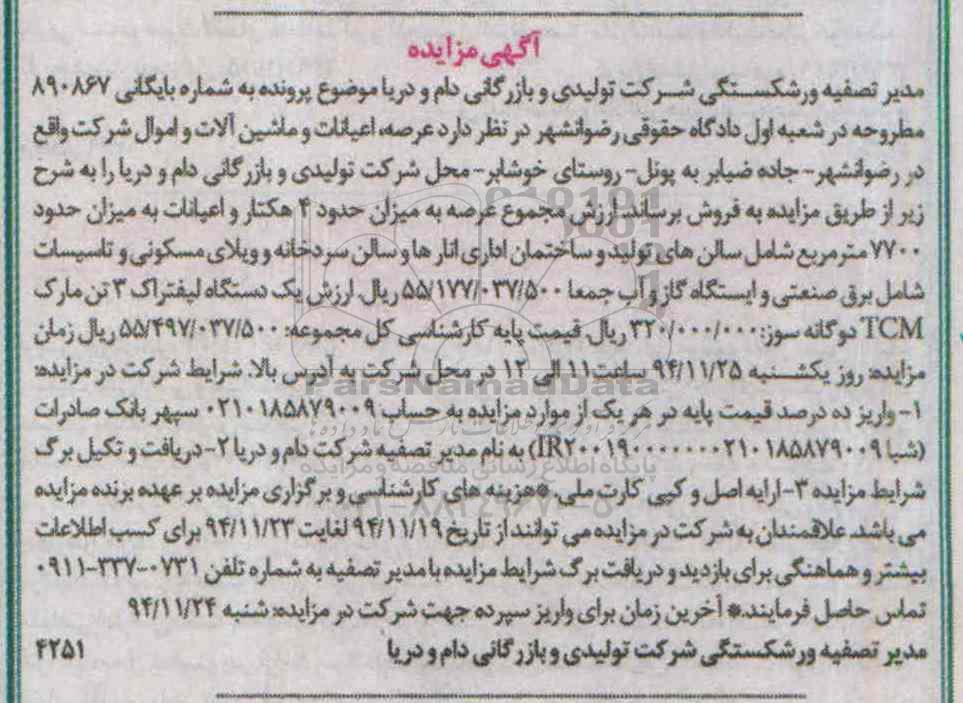 آگهی مزایده
مدیر تصفیه ورشکستگی شرکت تولیدی و بازرگانی دام و دریا موضوع پرونده به شماره بایگانی ۸۹۰۸۶۷
مطروحه در شعبه اول دادگاه حقوقی رضوانشهر در نظر دارد عرصه، اعیانات و ماشین آلات و اموال شرکت واقع
در رضوانشهر- جاده ضیابر به پونل- روستای خوشابر- محل شرکت تولیدی و بازرگانی دام و دریا را به شرح
زیر از طریق مزایده به فروش برساند. ارزش مجموع عرصه به میزان حدود ۴ هکتار و اعیانات به میزان حدود
۷۷۰۰ مترمربع شامل سالن های تولید و ساختمان اداری انار ها و سالن سردخانه و ویلای مسکونی و تاسیسات
شامل برق صنعتی و ایستگاه گاز و آب جمعا ۵۵/۱۷۷/۰۳۷/۵۰۰ ریال. ارزش یک دستگاه لیفتراک ۳ تن مارک
TCM دوگانه سوز: ۳۲۰/۰۰۰/۰۰۰ ریال. قیمت پایه کارشناسی کل مجموعه: ۵۵/۴۹۷/۰۳۷/۵۰۰ ریال زمان
مزایده: روز یکشنبه ۹۴/۱۱/۲۵ ساعت ۱۱ الی ۱۲ در محل شرکت به آدرس بالا. شرایط شرکت در مزایده:
۱- واریز ده درصد قیمت پایه در هر یک از موارد مزایده به حساب ۰۲۱۰۱۸۵۸۷۹۰۰۹ سپهر بانک صادرات
(شبا IR۲۰۰۱۹۰۰۰۰۰۰۰۲۱۰۱۸۵۸۷۹۰۰۹) به نام مدیر تصفیه شرکت دام و دریا ۲- دریافت و تکیل برگ
شرایط مزایده ۳- ارایه اصل و کپی کارت ملی. *هزینه های کارشناسی و برگزاری مزایده بر عهده برنده مزایده
می باشد. علاقمندان به شرکت در مزایده می توانند از تاریخ ۹۴/۱۱/۱۹ لغایت ۹۴/۱۱/۲۳ برای کسب اطلاعات
بیشتر و هماهنگی برای بازدید و دریافت برگ شرایط مزایده با مدیر تصفیه به شماره تلفن ۰۷۳۱-۳۳۷-۰۹۱۱
تماس حاصل فرمایند.* آخرین زمان برای واریز سپرده جهت شرکت در مزایده: شنبه ۹۴/۱۱/۲۴
مدیر تصفیه ورشکستگی شرکت تولیدی و بازرگانی دام و دریا ۴۲۵۱
ParsNamadData
پایگاه اطلاع رسانی مناقصه و مزایده